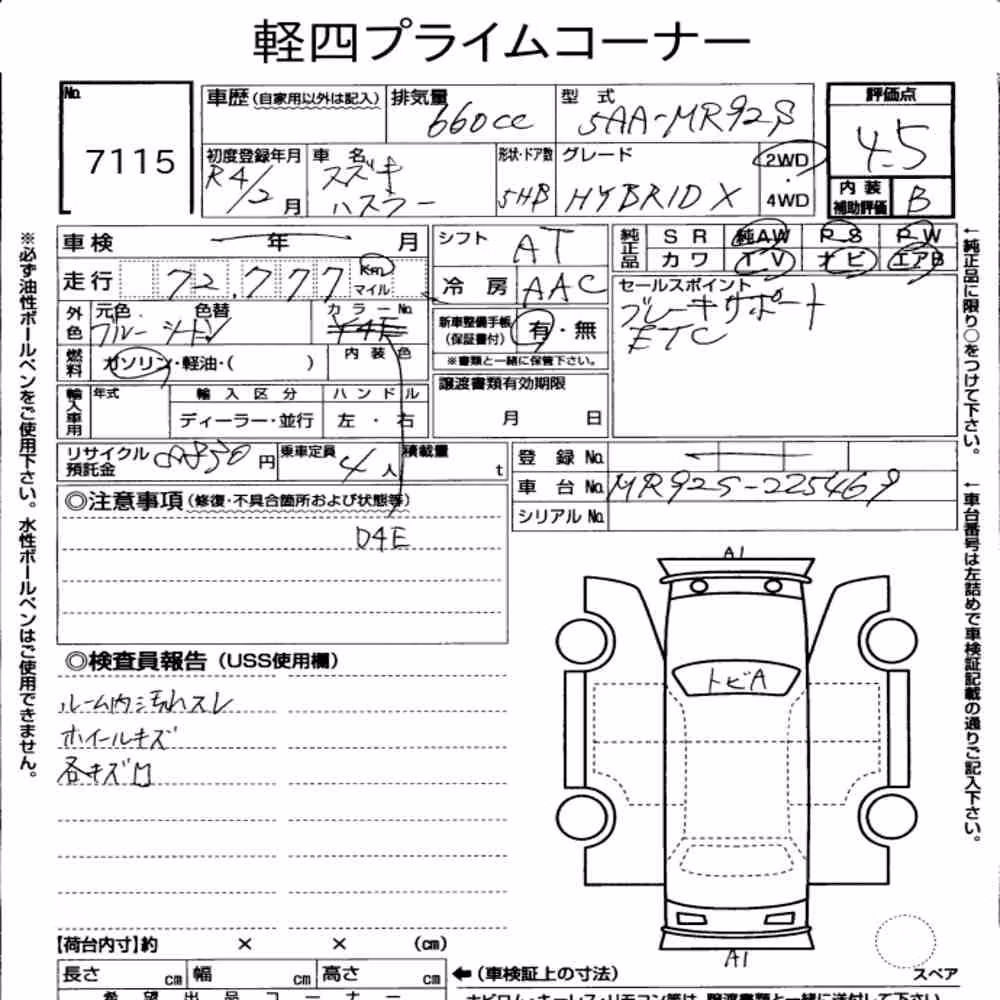 軽四プライムコーナー
No. 7115
車歴 (自家用以外は記入)
排気量 660cc
型式 5AA-MR92S
評価点 4.5
内装補助評価 B
初度登録年月 R4/2月
車名 スズキ ハスラー
形状・ドア数 5HB
グレード HYBRID X
2WD・4WD
車検 年 月
走行 72,777 Km マイル
シフト AT
冷房 AAC
純正品 SR 純AW PS PW
カワ TV ナビ エアB
セールスポイント
ブレーキサポート
ETC
外色 元色 色替
カラーNo.
燃料 ガソリン・軽油・( )
内装色
新車整備手帳 (保証書付) 有・無
※書類と一緒に保管下さい。
譲渡書類有効期限
月 日
輸入車用 年式 輸入区分 ハンドル
ディーラー・並行 左・右
リサイクル預託金 円
乗車定員 4人
積載量 t
登録No.
車台No. MR92S-225469
シリアルNo.
◎注意事項 (修復・不具合箇所および状態等)
D4E
◎検査員報告 (USS使用欄)
ルーム内汚れスレ
ホイールキズ
各キズ
A1
トビA
A1
スペア
【荷台内寸】約 × × (cm)
長さ cm 幅 cm 高さ cm
←(車検証上の寸法)
希望出品コーナー
※必ず油性ボールペンをご使用下さい。水性ボールペンはご使用できません。
←純正品に限り○をつけて下さい。
←車台番号は左詰めで車検証記載の通りご記入下さい。